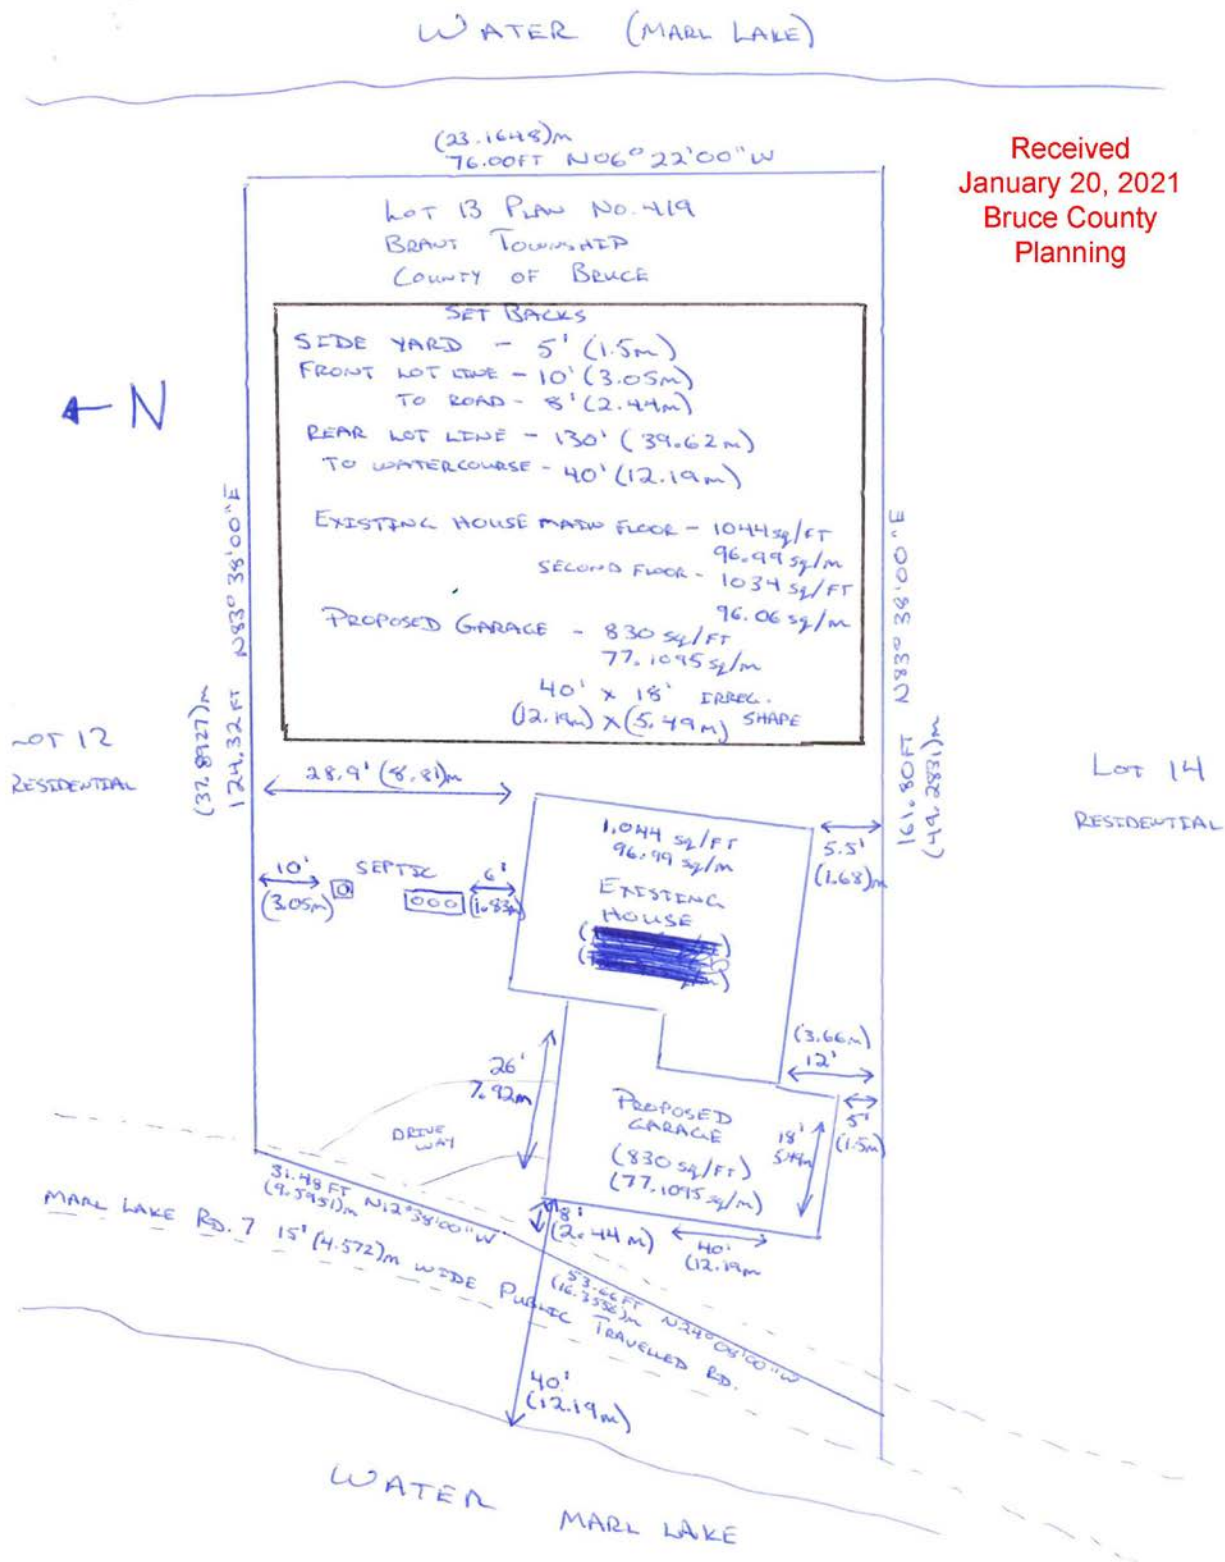 WATER (MARL LAKE)
(23.1648)m
76.00FT N06°22'00"W
Received
January 20, 2021
Bruce County
Planning
LOT 13 PLAN NO. 419
BRANT TOWNSHIP
COUNTY OF BRUCE
SET BACKS
SIDE YARD - 5' (1.5m)
FRONT LOT LINE - 10' (3.05m)
TO ROAD - 8' (2.44m)
REAR LOT LINE - 130' (39.62m)
TO WATERCOURSE - 40' (12.19m)
EXISTING HOUSE MAIN FLOOR - 1044 sq/FT
96.99 sq/m
SECOND FLOOR - 1034 sq/FT
96.06 sq/m
PROPOSED GARAGE - 830 sq/FT
77.1095 sq/m
40' x 18' IRREG.
(12.19m) x (5.49m) SHAPE
← N
N83°38'00"E
124.32 FT
(37.8927)m
N83°38'00"E
161.80FT
(49.2831)m
LOT 12
RESIDENTIAL
LOT 14
RESIDENTIAL
28.9' (8.81)m
1,044 sq/FT
96.99 sq/m
EXISTING
HOUSE
5.5'
(1.68)m
10'
(3.05m)
SEPTIC
6'
(1.83m)
(3.66m)
12'
26'
7.92m
PROPOSED
GARAGE
(830 sq/FT)
(77.1095 sq/m)
18'
5.49m
5'
(1.5m)
DRIVE
WAY
31.48 FT N12°38'00"W
(9.5951)m
8'
(2.44m)
40'
(12.19m
53.66FT N24°08'00"W
(16.3556)m
MARL LAKE RD. 7 15' (4.572)m WIDE PUBLIC TRAVELLED RD.
40'
(12.19m)
WATER
MARL LAKE